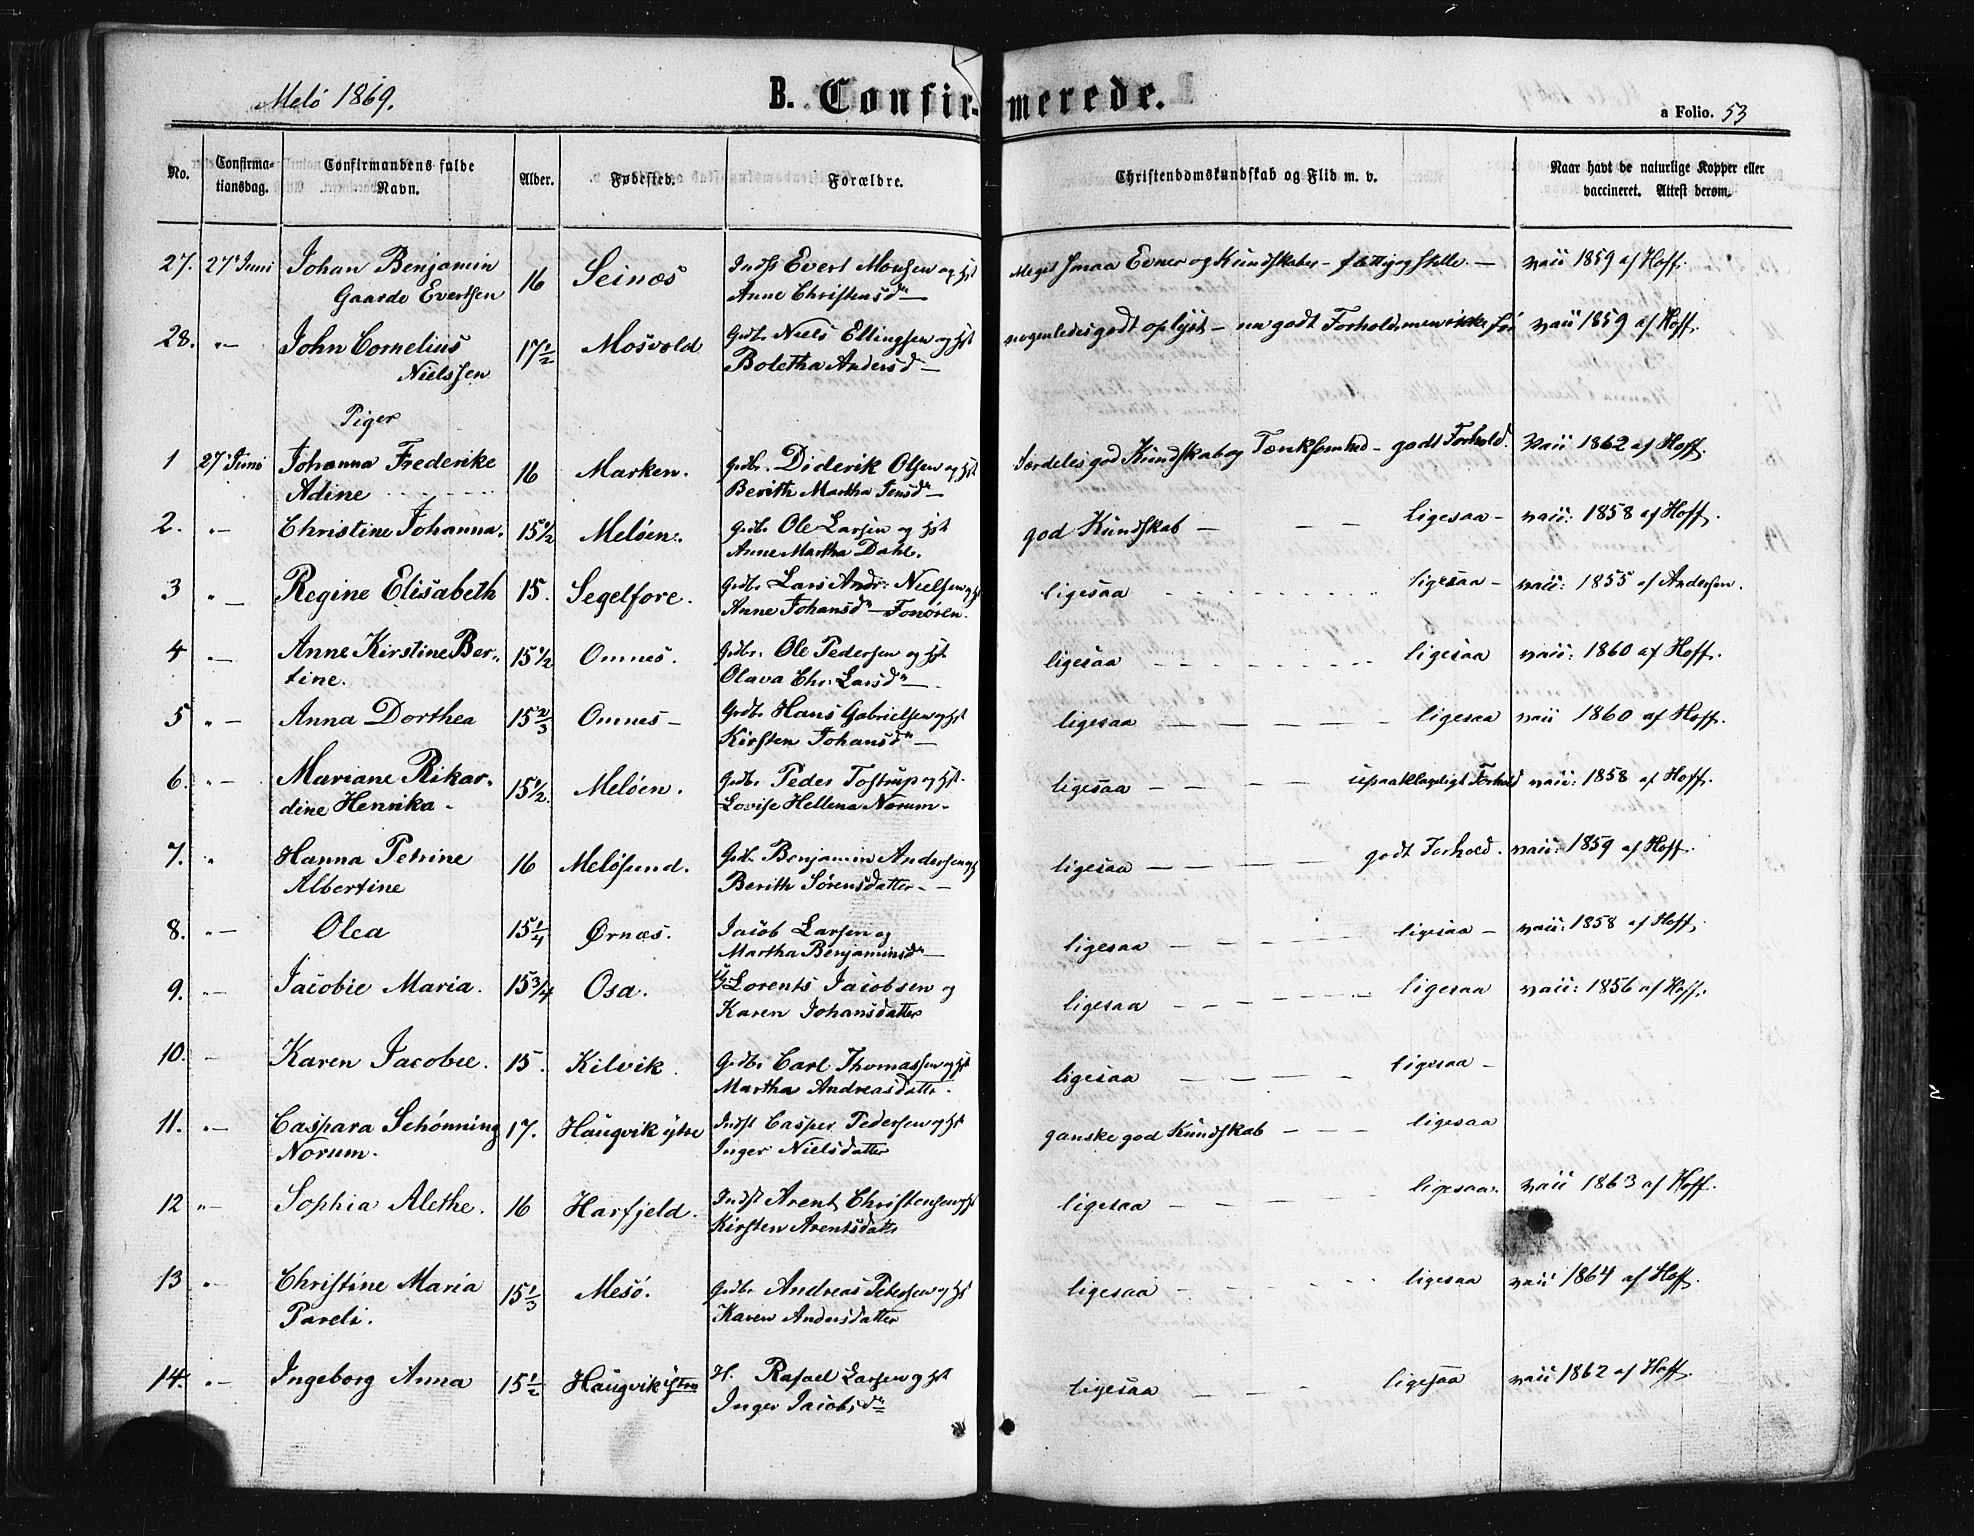 Melö 1869.
B. Confirmerede.
a Folio. 53
No.
Confirmationsdag.
Confirmandens fulde Navn.
Alder.
Fødested.
Forældre.
Christendomskundskab og Flid m. v.
Naar havt de naturlige Kopper eller vaccineret. Attest derom.
27. 27 Juni Johan Benjamin 16 Seinæs Indst Evert Monsen og Hst Meget smaa Evner og Kundskaber - flittig og stille. — vacc 1859 af Hoff.
Gaarde Evertsen Anne Christensd —
28. " — John Cornelius 17 1/2 Mosvold Gdbr. Niels Ellingsen og Hst nogenledes godt oplyst — godt Forhold, men ikke vacc 1859 af Hoff.
Nielssen Boletha Andersd —
Piger
1 27 Juni Johanna Frederike 16 Marken. Grdbr. Diderik Olsen og Hst Særdeles god Kundskab og Tænksomhed — godt Forhold. Vacc 1862 af Hoff.
Adine Berith Martha Jensd —
2. " — Christine Johanna. 15 1/2 Melöen. Grdbr Ole Larsen og Hst god Kundskab — — — ligesaa — vacc: 1858 af Hoff.
Anne Martha Dahl.
3 " — Regine Elisabeth 15. Segelfore. Grdbr Lars Andr: Nielsen og Hst ligesaa ligesaa — vacc: 1855 af Andersen.
Anne Johansd — Fonören.
4 " — Anne Kirstine Ber- 15 1/2 Omnes. Grdbr. Ole Pedersen og Hst ligesaa ligesaa vacc: 1860 af Hoff.
tine. Olava Chr: Larsd —
5 " — Anna Dorthea 15 2/3 Omnes — Grdbr Hans Gabrielsen og Hst ligesaa — — — ligesaa vacc 1860 af Hoff.
Kirsten Johansd —
6. " — Mariane Rikar- 15 1/2. Melöen. Grdbr Peder Tostrup og Hst. ligesaa — — — upaaklageligt Forhold vacc: 1858 af Hoff.
dine Henrika. Lovise Hellena Norum.
7. " Hanna Petrine 16 Melösund. Grdb. Benjamin Andersen og ligesaa — — — godt Forhold. vacc: 1859 af Hoff.
Albertine Berith Sörensdatter —
8. " — Olea 15 1/4 Ørnæs. Jacob Larsen og ligesaa — — — ligesaa — vacc: 1858 af Hoff.
Martha Benjaminsd —
9. " — Jacobie Maria. 15 3/4 Osa. Lorents Jacobsen og ligesaa — — — ligesaa vacc: 1856 af Hoff.
Karen Johansdatter
10. — Karen Jacobie. 15. Kilvik. Grdbr Carl Thomassen og Hst ligesaa — — — ligesaa —
Martha Andreasdatter.
11. " — Caspara Schönning 17. Haugvik ytre Indst Casper Pedersen og Hst ganske god Kundskab — — — ligesaa
Norum. Inger Nielsdatter
12 " — Sophia Alethe. 16 Harfjeld. Indst Arent Christensen og Hst ligesaa — — — ligesaa. vacc 1863 af Hoff.
Kirsten Arentsdatt
13 " — Christine Maria 15 1/3 Mesö. Grdbr Andreas Petersen og Hst ligesaa — ligesaa vacc 1864 af Hoff.
Pareli. Karen Andersdatter
14. " — Ingeborg Anna 15 1/2 Haugvik ytre H. Rafael Larsen og Hst ligesaa — — — ligesaa vacc 1862 af Hoff.
Inger Jacobsd